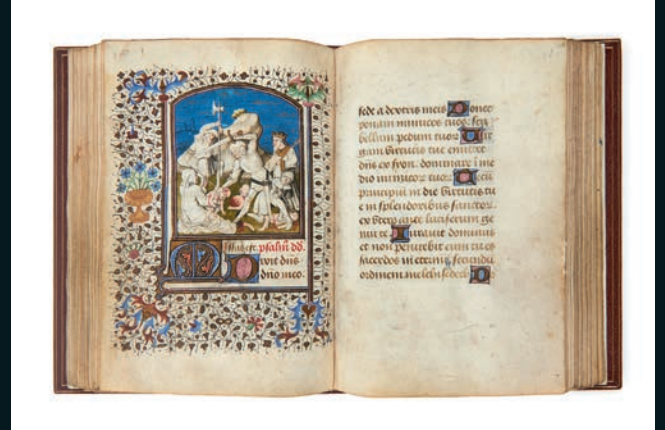 psalm9 dd.
Dixit dñs
dño meo.
sede a dextris meis Donec
ponam inimicos tuos: sca
bellum pedum tuor: Uir
gam virtutis tue emittet
dñs ex syon. dominare ī me
dio inimicor tuor: Tecū
principiū in die virtutis tu
e in splendoribus sanctor.
ex utero ante luciferum ge
nui te. Iurauit dominus
et non penitebit eum tu es
sacerdos in eternū. secundū
ordinem melchisedech. D